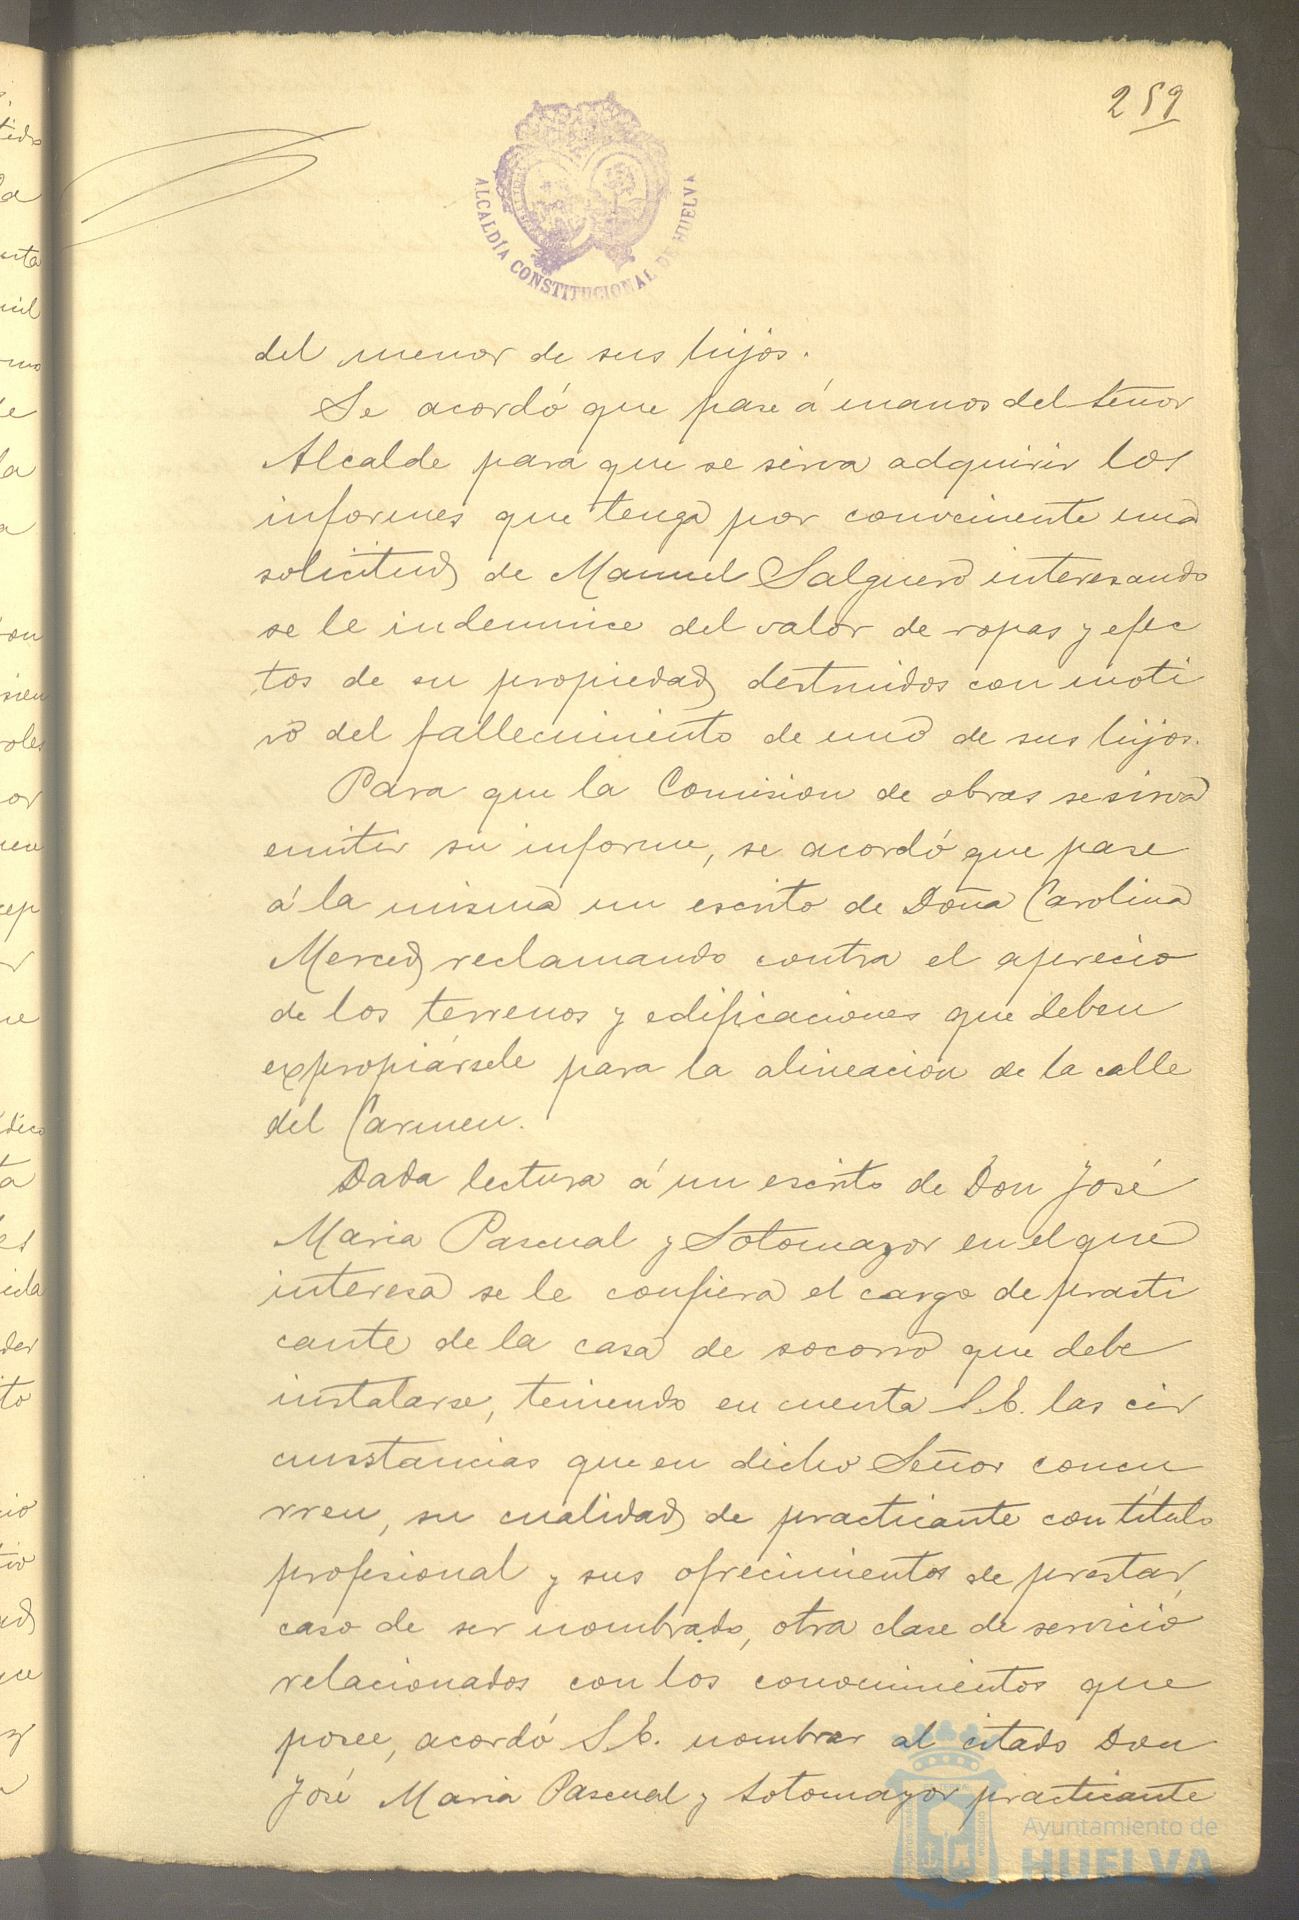 259
ALCALDÍA CONSTITUCIONAL DE HUELVA
del menor de sus hijos.
Se acordó que pase á manos del Señor
Alcalde para que se sirva adquirir los
informes que tenga por conveniente una
solicitud de Manuel Salguero interesando
se le indemnice del valor de ropas y efec
tos de su propiedad destruidos con moti
vo del fallecimiento de uno de sus hijos.
Para que la Comision de obras se sirva
emitir su informe, se acordó que pase
á la misma un escrito de Doña Carolina
Merced reclamando contra el aprecio
de los terrenos y edificaciones que deben
expropiársele para la alineacion de la calle
del Carmen.
Dada lectura á un escrito de Don José
Maria Pascual y Sotomayor en el que
interesa se le confiera el cargo de practi
cante de la casa de socorro que debe
instalarse, teniendo en cuenta S.E. las cir
cunstancias que en dicho Señor concu
rren, su cualidad de practicante con título
profesional y sus ofrecimientos de prestar,
caso de ser nombrado, otra clase de servicio
relacionados con los conocimientos que
posee, acordó S.E. nombrar al citado Don
José Maria Pascual y Sotomayor practicante
Ayuntamiento de
HUELVA